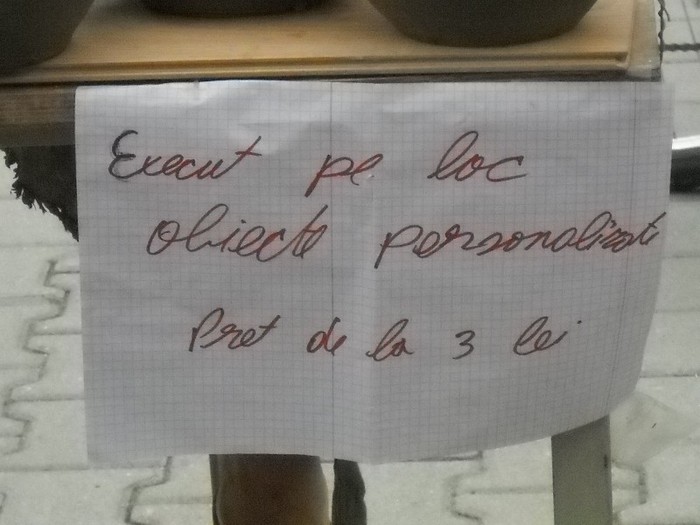 Execut pe loc
obiecte personalizate
Pret de la 3 lei